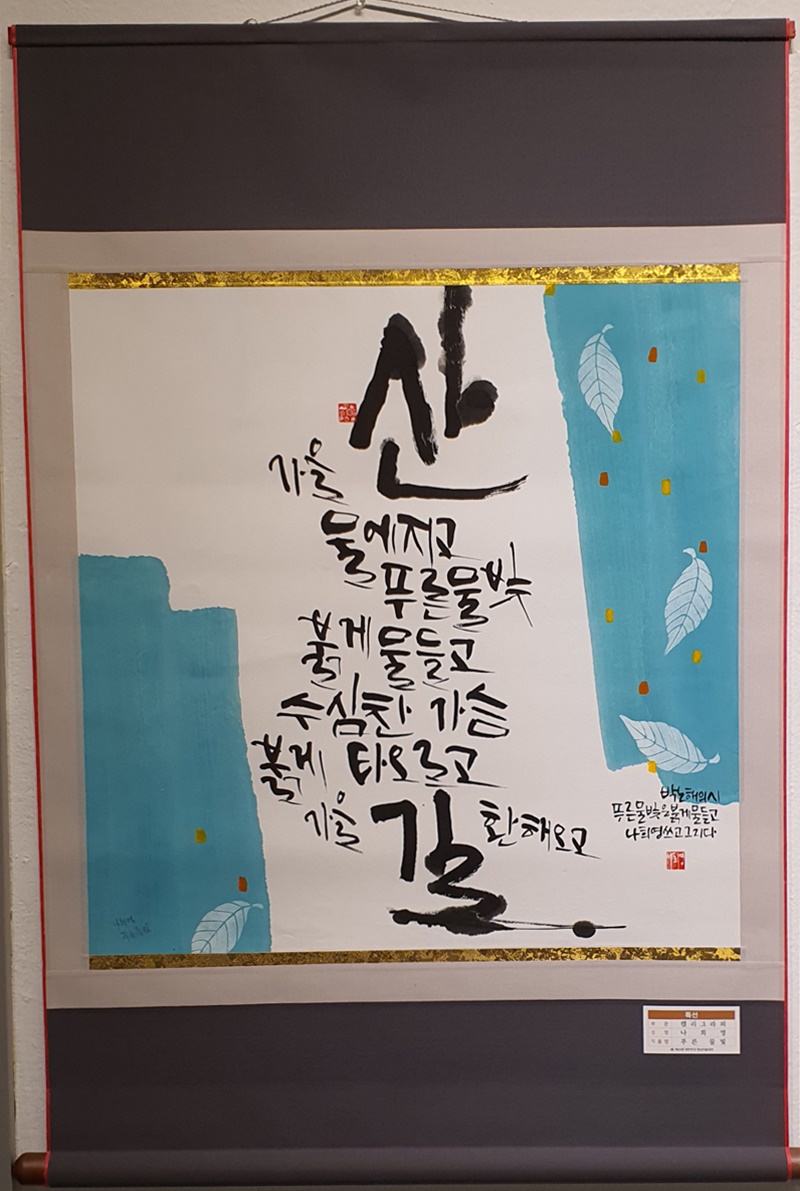 가을 산
물에지고
푸른물빛
붉게 물들고
수심찬 가슴
붉게 타오르고
가을 길 환해오고
박노해의시
푸른물빛은붉게물들고
나희영쓰고그리다
특선
부 문 캘리그라피
성 명 나 희 영
작품명 푸른 물빛